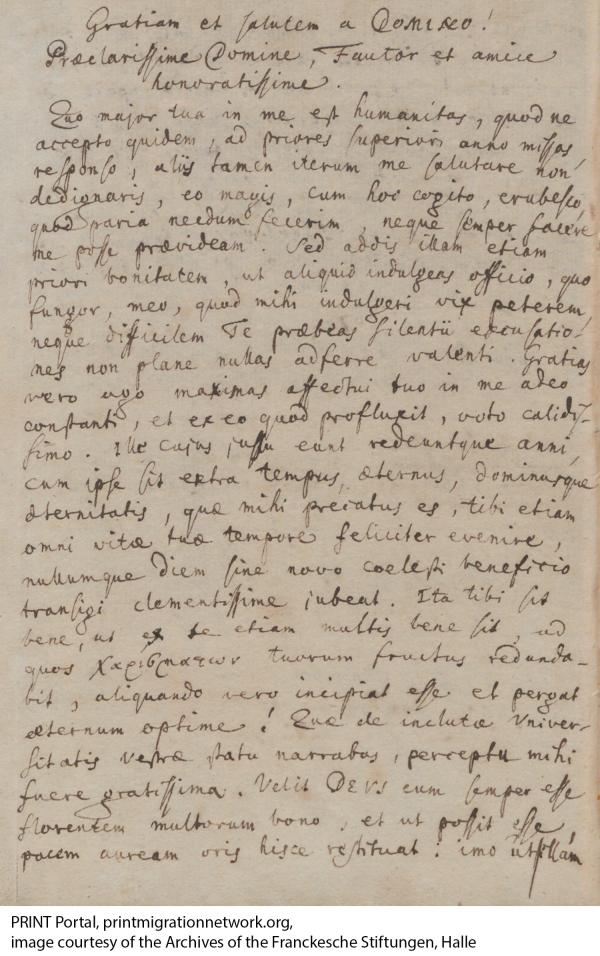 Gratiam et salutem a DOMINO!
Præclarissime Domine, Fautor et amice
honoratissime.
Quo major tua in me est humanitas, quod ne
accepto quidem, ad priores superiori anno missas
responso, aliis tamen iterum me salutare non
dedignaris, eo magis, cum hoc cogito, erubesco,
quod paria necdum fecerim, neque semper facere
me posse prævideam. Sed addis illam etiam
priori bonitatem, ut aliquid indulgeas officio, quo
fungor, meo, quod mihi indulgeri vix peterem,
neque difficilem Te præbeas silentii excusatio-
nes non plane nullas adferre valenti. Gratias
vero ago maximas affectui tuo in me adeo
constanti, et ex eo quod profluxit, voto calidis-
simo. Ille cujus jussu eunt redeuntque anni,
cum ipse sit extra tempus, æternus, dominusque
æternitatis, quæ mihi precatus es, tibi etiam
omni vitæ tuæ tempore feliciter evenire,
nullumque diem sine novo coelesti beneficio
transigi clementissime jubeat. Ita tibi sit
bene, ut ex te etiam multis bene sit, ad
quos χαρισματων tuorum fructus redunda-
bit, aliquando vero incipiat esse et pergat
æternum optime! Quæ de inclutæ Univer-
sitatis vestræ statu narrabas, perceptu mihi
fuere gratissima. Velit DEUS eum semper esse
florentem multorum bono, et ut possit esse,
pacem auream oris hisce restituat: imo
PRINT Portal, printmigrationnetwork.org,
image courtesy of the Archives of the Franckesche Stiftungen, Halle